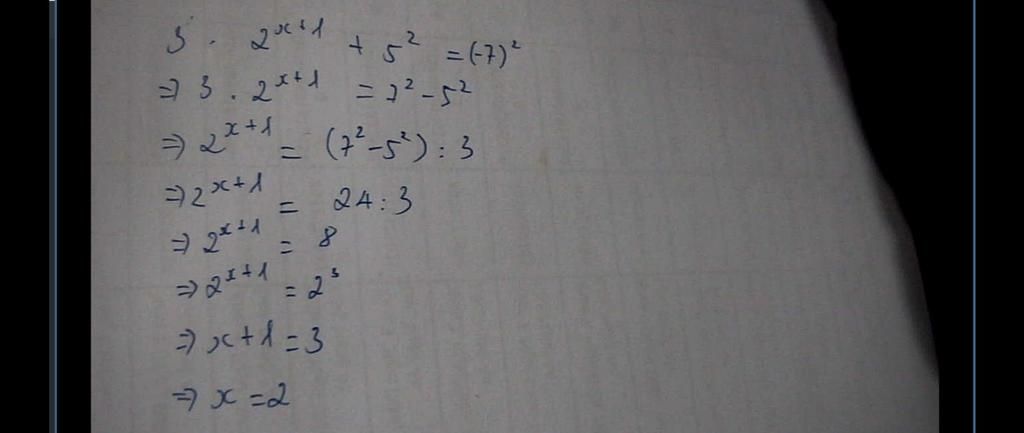 3 . 2^{x+1} + 5^2 = (-7)^2
=> 3 . 2^{x+1} = 7^2 - 5^2
=> 2^{x+1} = (7^2 - 5^2) : 3
=> 2^{x+1} = 24 : 3
=> 2^{x+1} = 8
=> 2^{x+1} = 2^3
=> x + 1 = 3
=> x = 2